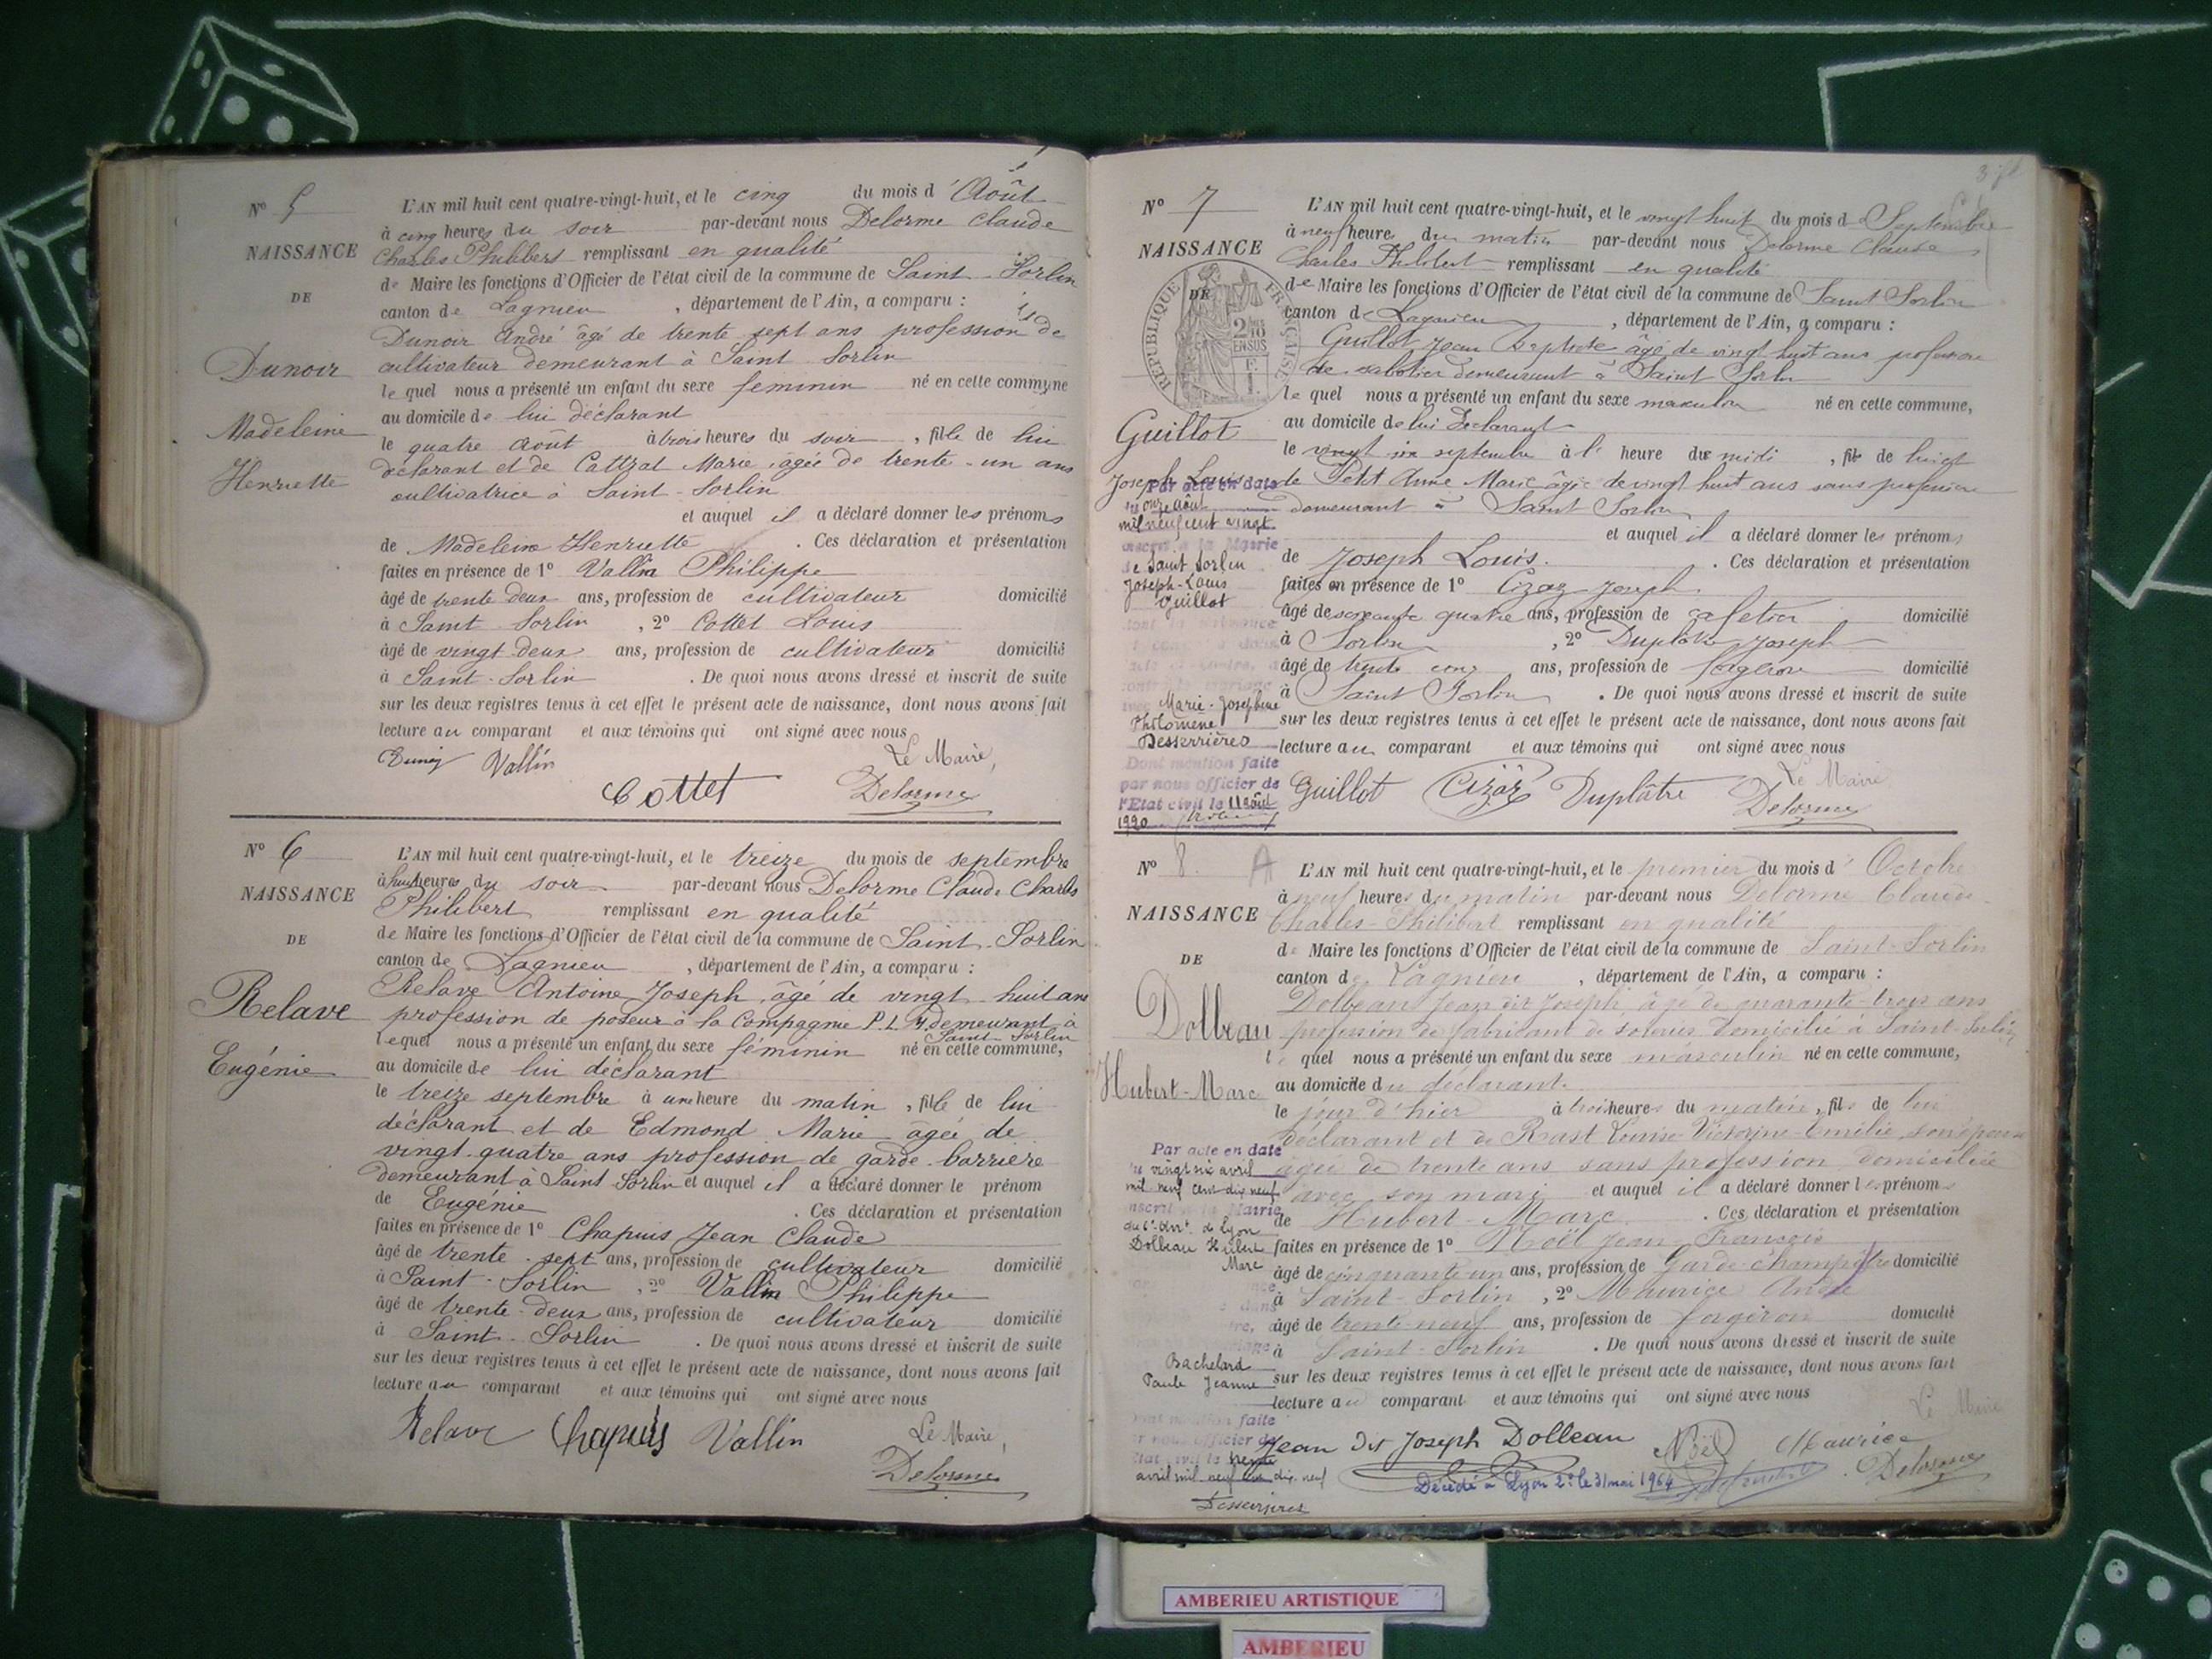 N° 5
NAISSANCE
DE
Dunoir
Madeleine
Henriette
L'AN mil huit cent quatre-vingt-huit, et le cinq du mois d'Août
à cinq heures du soir par-devant nous Delorme Claude
Charles Philibert remplissant en qualité
de Maire les fonctions d'Officier de l'état civil de la commune de Saint-Sorlin
canton de Lagnieu, département de l'Ain, a comparu :
Dunoir André âgé de trente sept ans profession de
cultivateur demeurant à Saint Sorlin
lequel nous a présenté un enfant du sexe féminin né en cette commune
au domicile de lui déclarant
le quatre Août à trois heures du soir, fille de lui
déclarant et de Cattzat Marie, âgée de trente-un ans
cultivatrice à Saint-Sorlin
et auquel il a déclaré donner les prénoms
de Madeleine Henriette. Ces déclaration et présentation
faites en présence de 1° Vallin Philippe
âgé de trente deux ans, profession de cultivateur domicilié
à Saint Sorlin, 2° Cottet Louis
âgé de vingt deux ans, profession de cultivateur domicilié
à Saint-Sorlin. De quoi nous avons dressé et inscrit de suite
sur les deux registres tenus à cet effet le présent acte de naissance, dont nous avons fait
lecture au comparant et aux témoins qui ont signé avec nous
Vallin Le Maire,
Cottet Delorme
N° 6
NAISSANCE
DE
Relave
Eugénie
L'AN mil huit cent quatre-vingt-huit, et le treize du mois de septembre
à huit heures du soir par-devant nous Delorme Claude Charles
Philibert remplissant en qualité
de Maire les fonctions d'Officier de l'état civil de la commune de Saint-Sorlin
canton de Lagnieu, département de l'Ain, a comparu :
Relave Antoine Joseph, âgé de vingt-huit ans
profession de poseur à la Compagnie P.L.M. demeurant à
Saint-Sorlin
lequel nous a présenté un enfant du sexe féminin né en cette commune,
au domicile de lui déclarant
le treize septembre à une heure du matin, fille de lui
déclarant et de Edmond Marie âgée de
vingt-quatre ans profession de garde-barrière
demeurant à Saint Sorlin et auquel il a déclaré donner le prénom
de Eugénie. Ces déclaration et présentation
faites en présence de 1° Chapuis Jean Claude
âgé de trente-sept ans, profession de cultivateur domicilié
à Saint-Sorlin, 2° Vallin Philippe
âgé de trente-deux ans, profession de cultivateur domicilié
à Saint-Sorlin. De quoi nous avons dressé et inscrit de suite
sur les deux registres tenus à cet effet le présent acte de naissance, dont nous avons fait
lecture au comparant et aux témoins qui ont signé avec nous
Relave Chapuis Vallin Le Maire,
Delorme
N° 7
NAISSANCE
DE
RÉPUBLIQUE FRANÇAISE
2/10
EN SUS
Guillot
Joseph Louis
Par acte en date
du onze août
mil neuf cent vingt
inscrit à la Mairie
de Saint Sorlin
Joseph-Louis
Guillot
Marie-Joséphine
Philomène
Desserrières
Dont mention faite
par nous officier de
l'Etat civil le 11 août
1920
L'AN mil huit cent quatre-vingt-huit, et le vingt huit du mois de Septembre
à neuf heures du matin par-devant nous Delorme Claude
Charles Philibert remplissant en qualité
de Maire les fonctions d'Officier de l'état civil de la commune de Saint Sorlin
canton de Lagnieu, département de l'Ain, a comparu :
Guillot Jean Baptiste âgé de vingt huit ans profession
de sabotier demeurant à Saint Sorlin
lequel nous a présenté un enfant du sexe masculin né en cette commune,
au domicile de lui Déclarant
le vingt six septembre à l' heure de midi, fils de lui et
de Petit Anne Marie âgée de vingt huit ans sans profession
demeurant à Saint Sorlin
et auquel il a déclaré donner les prénoms
de Joseph Louis. Ces déclaration et présentation
faites en présence de 1° Cizaz Joseph
âgé de soixante quatre ans, profession de cafetier domicilié
à Sorlin, 2° Duplâtre Joseph
âgé de trente cinq ans, profession de forgeron domicilié
à Saint Sorlin. De quoi nous avons dressé et inscrit de suite
sur les deux registres tenus à cet effet le présent acte de naissance, dont nous avons fait
lecture au comparant et aux témoins qui ont signé avec nous
Guillot Cizar Duplâtre Le Maire
Delorme
N° 8
NAISSANCE
DE
Dolbeau
Hubert-Marc
Par acte en date
du vingt six avril
mil neuf cent dix neuf
inscrit à la Mairie
du 6e Arrt de Lyon
Dolbeau Hubert
Marc
Bachelard
Paule Jeanne
Dont mention faite
par nous officier de
l'Etat civil le trente
avril mil neuf cent dix neuf
Desserrières
A L'AN mil huit cent quatre-vingt-huit, et le premier du mois d'Octobre
à neuf heures du matin par-devant nous Delorme Claude
Charles-Philibert remplissant en qualité
de Maire les fonctions d'Officier de l'état civil de la commune de Saint-Sorlin
canton de Lagnieu, département de l'Ain, a comparu :
Dolbeau Jean dit Joseph, âgé de quarante-trois ans
profession de fabricant de soieries domicilié à Saint-Sorlin
lequel nous a présenté un enfant du sexe masculin né en cette commune,
au domicile du déclarant.
le jour d'hier à trois heures du matin, fils de lui
déclarant et de Rast Louise Victorine Emilie, son épouse
âgée de trente ans sans profession domiciliée
avec son mari et auquel il a déclaré donner les prénoms
de Hubert-Marc. Ces déclaration et présentation
faites en présence de 1° Noël Jean François
âgé de cinquante-un ans, profession de Garde-champêtre domicilié
à Saint-Sorlin, 2° Maurice André
âgé de trente-neuf ans, profession de forgeron domicilié
à Saint-Sorlin. De quoi nous avons dressé et inscrit de suite
sur les deux registres tenus à cet effet le présent acte de naissance, dont nous avons fait
lecture au comparant et aux témoins qui ont signé avec nous
Le Maire
Jean dit Joseph Dolbeau Noël Maurice
Décédé à Lyon 2e le 31 mai 1964 Delorme
AMBERIEU ARTISTIQUE
AMBERIEU